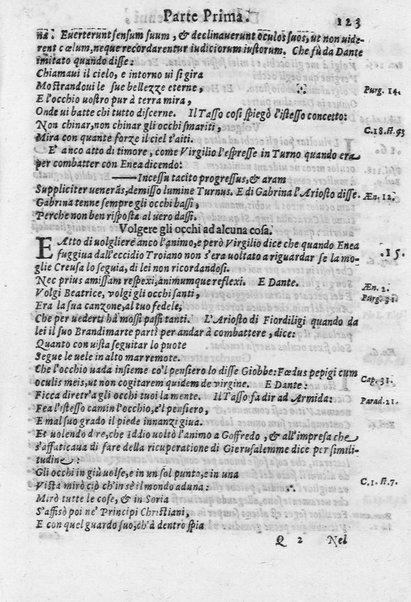 Parte Prima. 123
na. Euerterunt sensum suum, & declinauerunt oculos suos, ut non uide
rent cœlum, neque recordarentur iudiciorum iustorum. Che fù da Dante
imitato quando disse:
Chiamaui il cielo, e intorno ui si gira
Mostrandoui le sue bellezze eterne, Purg. 14.
E l'occhio uostro pur à terra mira,
Onde ui batte chi tutto discerne. Il Tasso così spiegò l'istesso concetto:
Non chinar, non chinar gli occhi smariti, C.18. st.93
Mira con quante forze il ciel t'aiti.
E' anco atto di timore, come Virgilio l'espresse in Turno quando era
per combatter con Enea dicendo:
—— Incessu tacito progressus, & aram
Suppliciter uenerãs, demisso lumine Turnus. E di Gabrina l'Ariosto disse. Æn. 12.
Gabrina tenne sempre gli occhi bassi,
Perche non ben risposta al uero dassi.
Volgere gli occhi ad alcuna cosa.
E Atto di uolgliere anco l'animo, e però Virgilio dice che quando Enea 15.
fuggiua dall'eccidio Troiano non s'era uoltato a riguardar se la mo-
glie Creusa lo seguia, di lei non ricordandosi.
Nec prius amissam respexi, animumque reflexi. E Dante. Æn. 2.
Volgi Beatrice, volgi gli occhi santi, Purg. 31.
Era la sua canzone, al tuo fedele,
Che per uederti hà mossi passi tanti. L'Ariosto di Fiordiligi quando da
lei il suo Brandimarte partì per andar à combattere, dice:
Quanto con uista seguitar lo puote
Segue le uele in alto mar remote.
Che l'occhio uada insieme col pensiero lo disse Giobbe: Fœdus pepigi cum
oculis meis, ut non cogitarem quidem de virgine. E Dante: Cap. 31.
Ficca diretr'a gli occhi tuoi la mente. Il Tasso fa dir ad Armida: Parad. 21.
Fea l'istesso camin l'occhio, e'l pensiero,
E mal suo grado il piede innanzi giua.
Et uolendo dire, che Iddio uoltò l'animo a Goffredo, & all'impresa che
s'affaticaua di fare della ricuperatione di Gierusalemme dice per simili-
tudine:
Gli occhi in giù uolse, e in un sol punto, e in una C.1. st.7.
Vista mirò ciò ch'in sè il mondo aduna:
Mirò tutte le cose, & in Soria
S'affisò poi ne' Principi Christiani,
E con quel guardo suo, ch'à dentro spia
Q 2 Nel